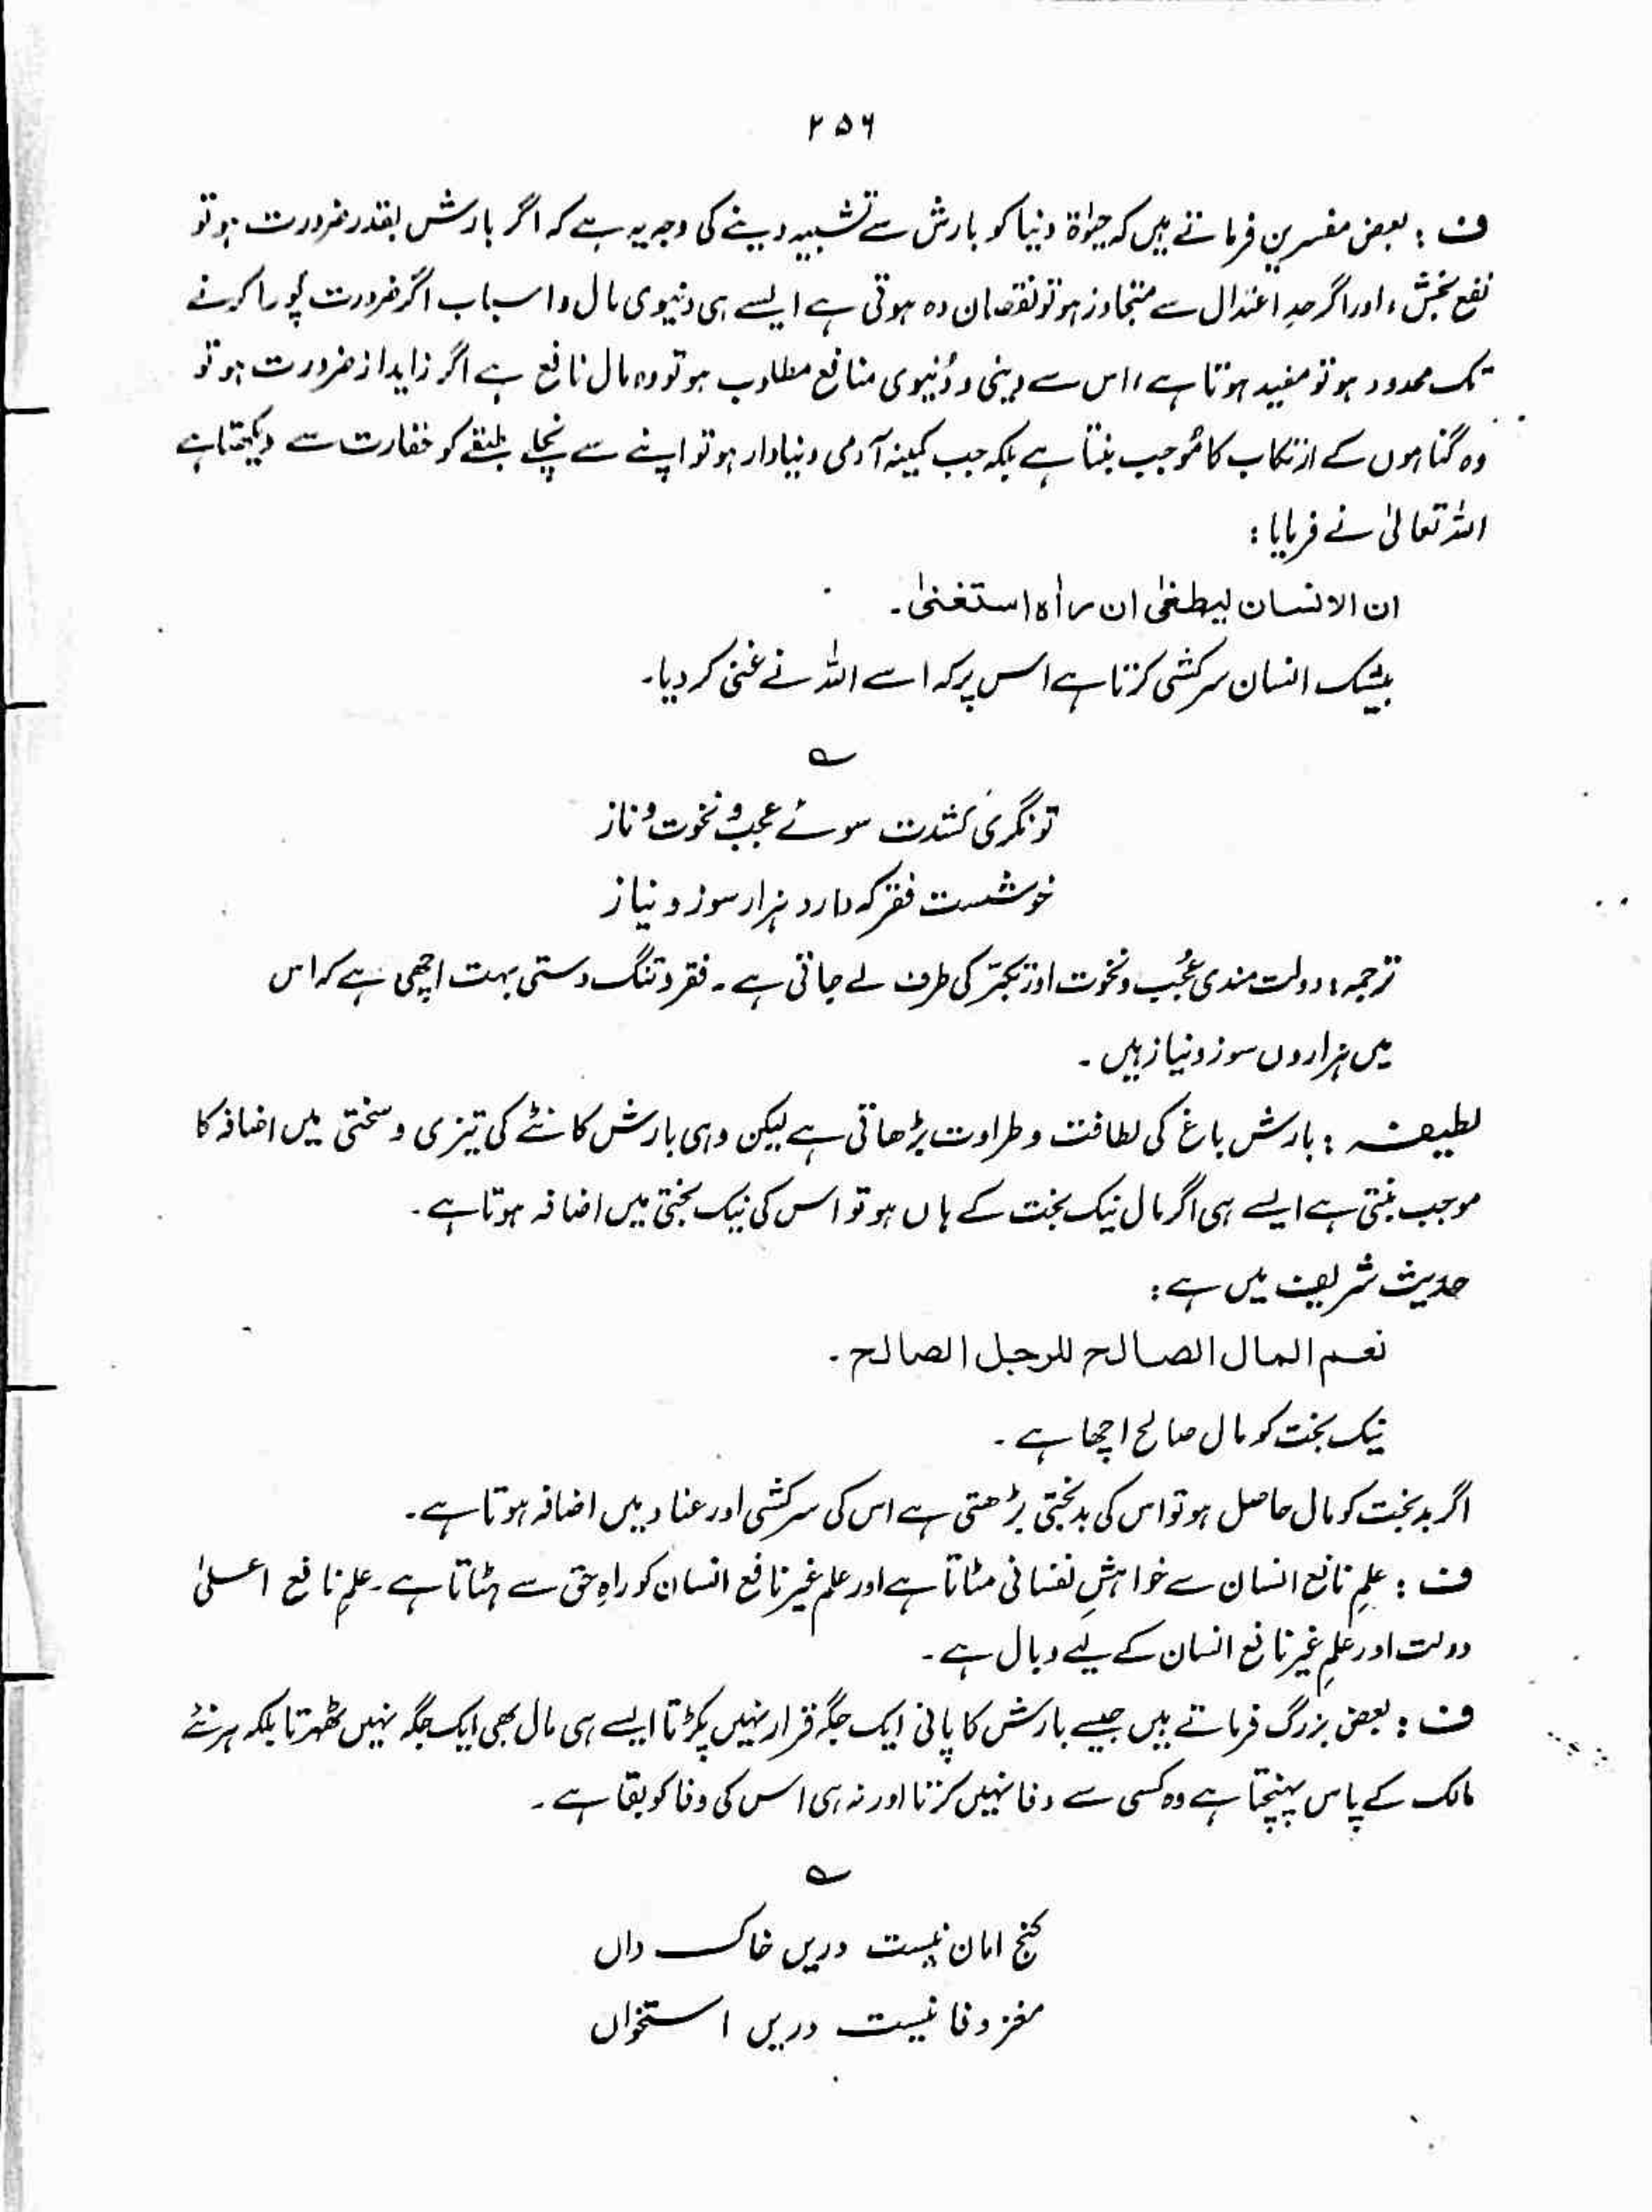 ۲۵۶
ف : بعض مفسرین فرماتے ہیں کہ حیٰوۃ دنیا کو بارش سے تشبیہ دینے کی وجہ یہ ہے کہ اگر بارش بقدر ضرورت ہو تو
نفع بخش ، اور اگر حدِ اعتدال سے متجاوز ہو تو نقصان دہ ہوتی ہے ایسے ہی دنیوی مال و اسباب اگر ضرورت پُورا کرنے
تک محدود ہو تو مفید ہوتا ہے ، اس سے دینی و دُنیوی منافع مطلوب ہو تو وہ مال نافع ہے اگر زاید از ضرورت ہو تو
وہ گناہوں کے ارتکاب کا مُوجب بنتا ہے بلکہ جب کمینہ آدمی دنیادار ہو تو اپنے سے نچلے طبقے کو حقارت سے دیکھتا ہے
اللہ تعالیٰ نے فرمایا :
ان الانسان لیطغیٰ ان راٰہ استغنیٰ۔
بیشک انسان سرکشی کرتا ہے اس پر کہ اسے اللہ نے غنی کر دیا۔
؎
تونگری کشدت سوئے عجب و نخوت و ناز
خوشست فقر کہ دارد ہزار سوز و نیاز
ترجمہ : دولت مندی عُجب و نخوت اور تکبّر کی طرف لے جاتی ہے ۔ فقر و تنگ دستی بہت اچھی ہے کہ اس
میں ہزاروں سوز و نیاز ہیں ۔
لطیفہ : بارش باغ کی لطافت و طراوت بڑھاتی ہے لیکن وہی بارش کانٹے کی تیزی و سختی میں اضافہ کا
موجب بنتی ہے ایسے ہی اگر مال نیک بخت کے ہاں ہو تو اس کی نیک بختی میں اضافہ ہوتا ہے ۔
حدیث شریف میں ہے :
نعم المال الصالح للرجل الصالح ۔
نیک بخت کو مال صالح اچھا ہے ۔
اگر بدبخت کو مال حاصل ہو تو اس کی بدبختی بڑھتی ہے اس کی سرکشی اور عناد میں اضافہ ہوتا ہے ۔
ف : علمِ نافع انسان سے خواہشِ نفسانی مٹاتا ہے اور علم غیر نافع انسان کو راہِ حق سے ہٹاتا ہے ۔ علمِ نافع اعلیٰ
دولت اور علمِ غیر نافع انسان کے لیے وبال ہے ۔
ف : بعض بزرگ فرماتے ہیں جیسے بارش کا پانی ایک جگہ قرار نہیں پکڑتا ایسے ہی مال بھی ایک جگہ نہیں ٹھہرتا بلکہ ہر نئے
مالک کے پاس پہنچتا ہے وہ کسی سے وفا نہیں کرتا اور نہ ہی اس کی وفا کو بقا ہے ۔
؎
گنج امان نیست دریں خاک داں
مغز وفا نیست دریں استخواں